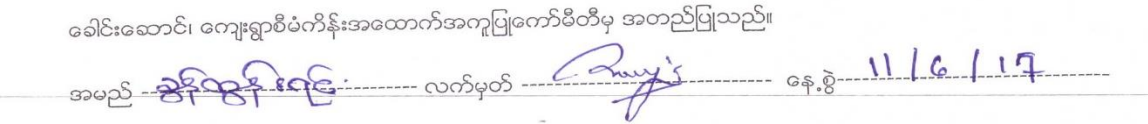 ခေါင်းဆောင်၊ ကျေးရွာစီမံကိန်းအထောက်အကူပြုကော်မီတီမှ အတည်ပြုသည်။
အမည် ခွန်ထွန်းရင်း လက်မှတ် နေ့စွဲ 11/6/17